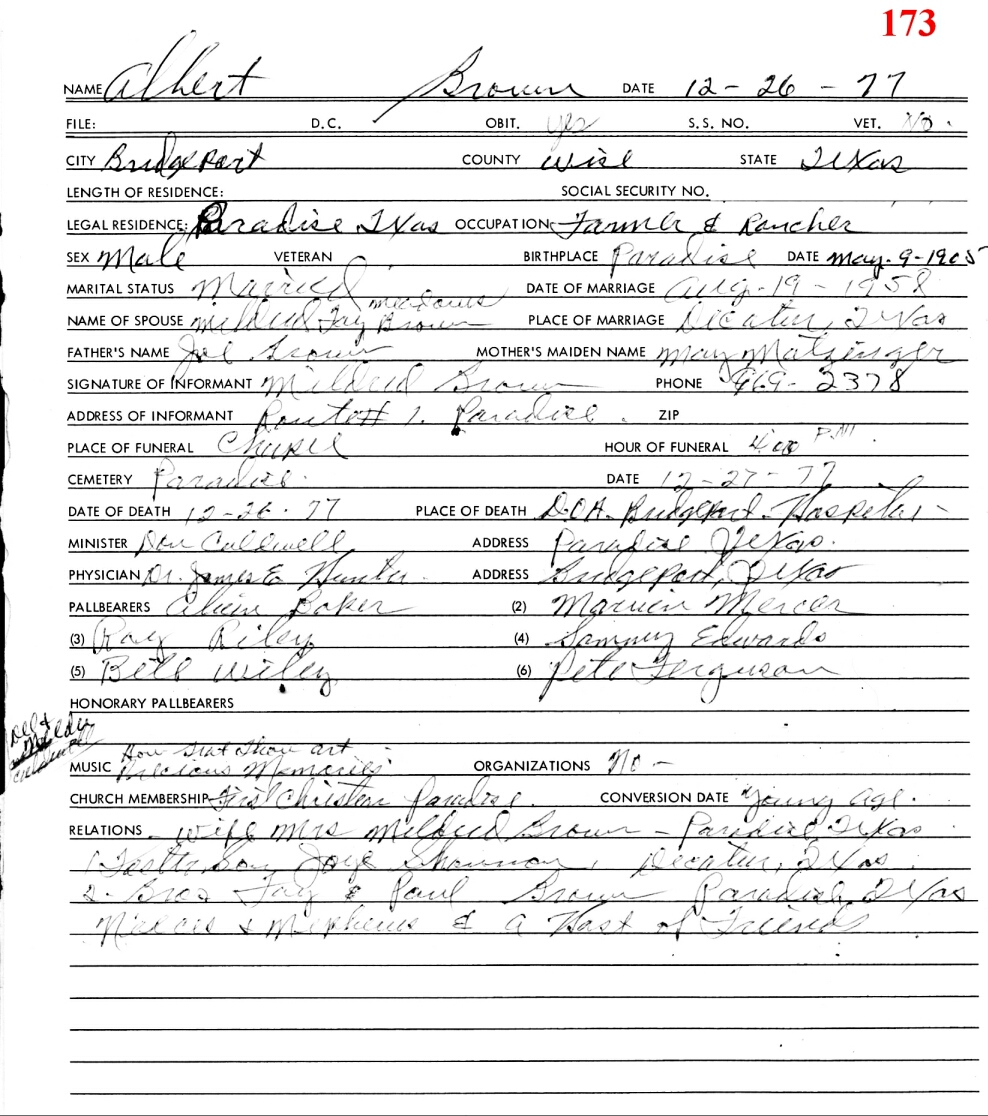 173
NAME Albert Brown DATE 12-26-77
FILE: D.C. OBIT. yes S.S. NO. VET. No.
CITY Bridgeport COUNTY Wise STATE Texas
LENGTH OF RESIDENCE: SOCIAL SECURITY NO.
LEGAL RESIDENCE: Paradise Texas OCCUPATION Farmer & Rancher
SEX Male VETERAN BIRTHPLACE Paradise DATE May-9-1905
MARITAL STATUS Married DATE OF MARRIAGE Aug-19-1958
meadows
NAME OF SPOUSE Mildred Fay Brown PLACE OF MARRIAGE Decatur, Texas
FATHER'S NAME Joe Brown MOTHER'S MAIDEN NAME May Matzinger
SIGNATURE OF INFORMANT Mildred Brown PHONE 969-2378
ADDRESS OF INFORMANT Route # 1. Paradise. ZIP
PLACE OF FUNERAL Chapel HOUR OF FUNERAL 4:00 P.M.
CEMETERY Paradise. DATE 12-27-77
DATE OF DEATH 12-26-77 PLACE OF DEATH D.O.A. Bridgeport Hospital-
MINISTER Don Caldwell ADDRESS Paradise Texas.
PHYSICIAN Dr. James E Hunter. ADDRESS Bridgeport, Texas
PALLBEARERS Alvin Baker (2) Marvin Mercer
(3) Ray Riley (4) Sammy Edwards
(5) Bill Wiley (6) Pete Ferguson
HONORARY PALLBEARERS
How Great Thou art -
MUSIC Precious Memories ORGANIZATIONS No -
CHURCH MEMBERSHIP First Christen Paradise. CONVERSION DATE Young age.
RELATIONS - Wife Mrs Mildred Brown - Paradise Texas
1 Foster Son Shannon, Decatur, Texas.
2- Bros Fay & Paul Brown Paradise, Texas
Nieces & Nephews & A Host of Friends